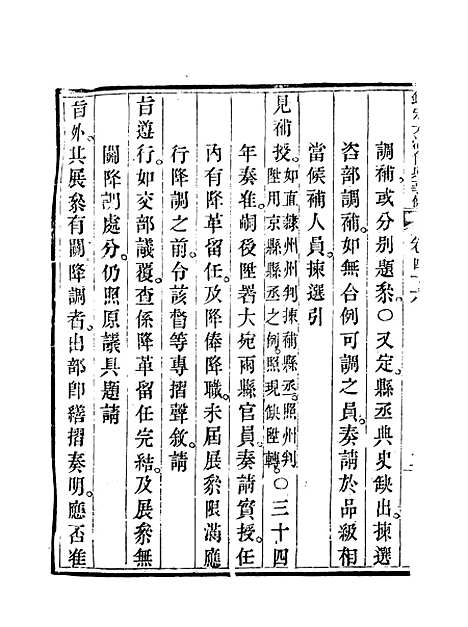 調補或分別題叅○又定縣丞典史缺出揀選
咨部調補如無合例可調之員奏請於品級相
當候補人員揀選引
見補授如直隸州州判揀補縣丞照州判
陞用京縣縣丞之例照現缺陞轉○三十四
年奏准嗣後陞署大宛兩縣官員奏請實授任
內有降革留任及降俸降職未屆展叅限滿應
行降調之前令該督等專摺聲敘請
旨遵行如交部議覆查係降革留任完結及展叅無
關降調處分仍照原議具題請
旨外其展叅有關降調者由部卽繕摺奏明應否准